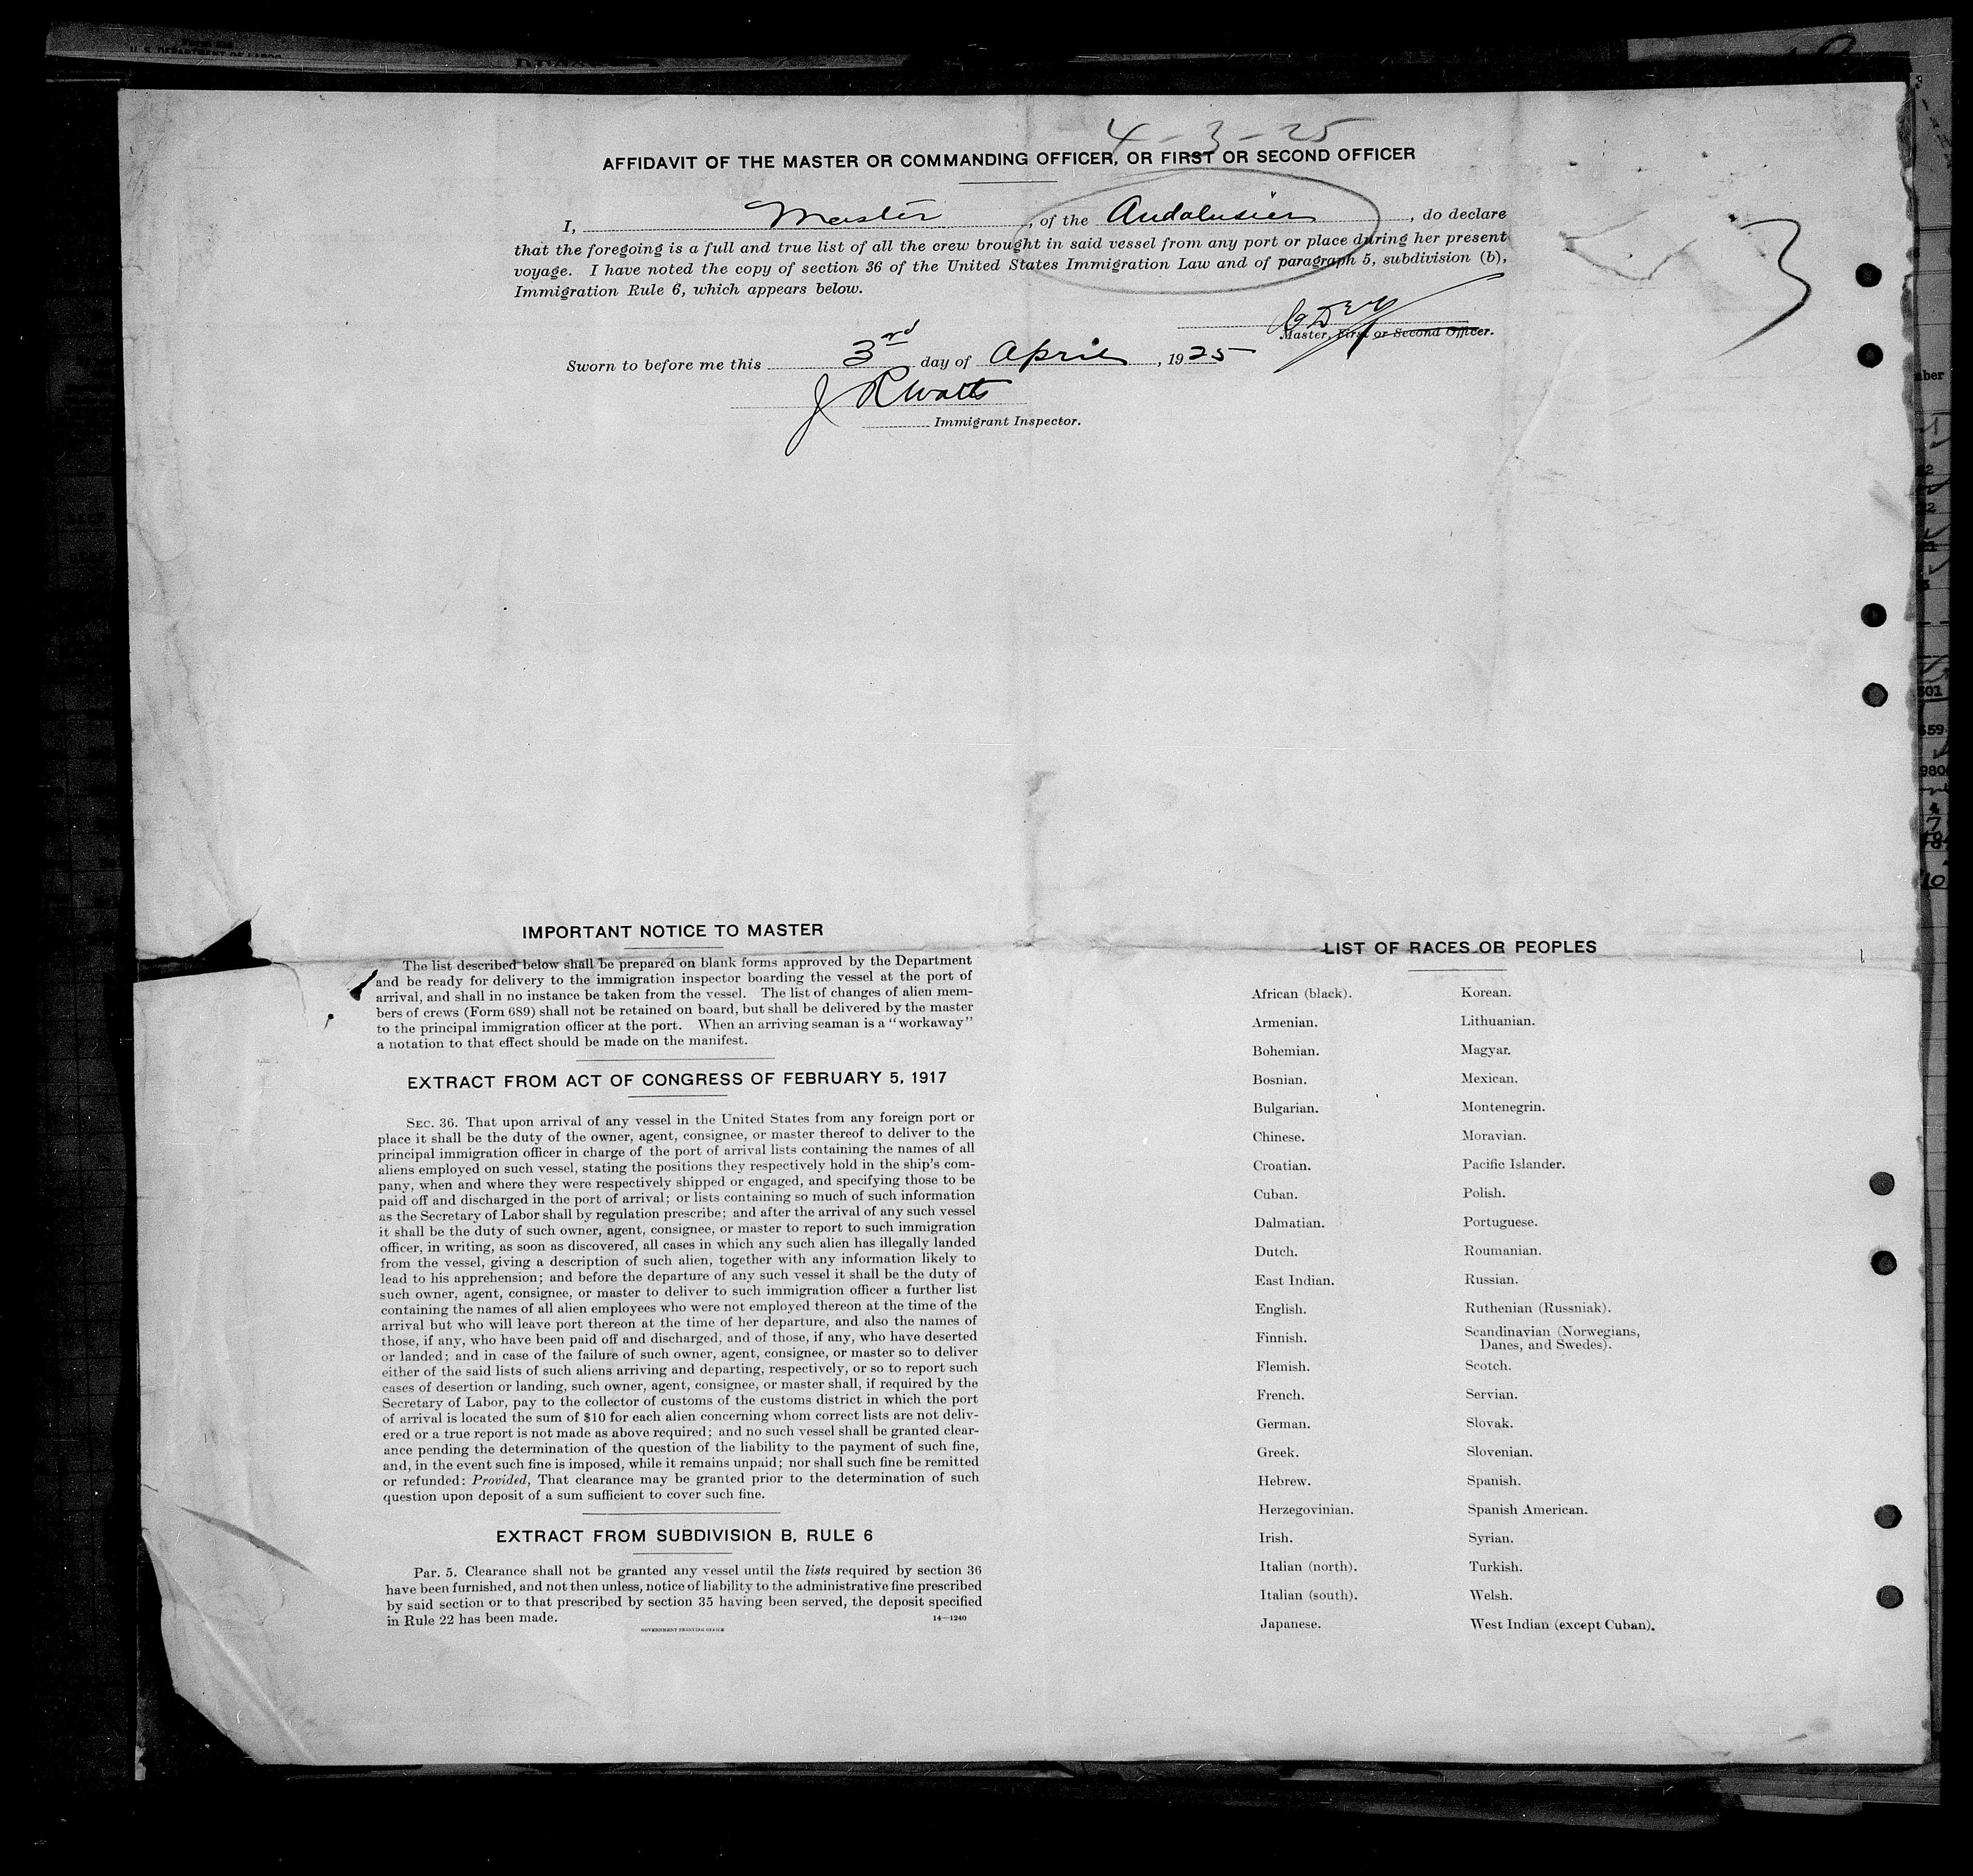 4-3-25
AFFIDAVIT OF THE MASTER OR COMMANDING OFFICER, OR FIRST OR SECOND OFFICER
I, Master, of the Andalusier, do declare
that the foregoing is a full and true list of all the crew brought in said vessel from any port or place during her present
voyage. I have noted the copy of section 36 of the United States Immigration Law and of paragraph 5, subdivision (b),
Immigration Rule 6, which appears below.
3
Master, First or Second Officer.
Sworn to before me this 3rd day of April, 1925
J R Watts
Immigrant Inspector.
IMPORTANT NOTICE TO MASTER
The list described below shall be prepared on blank forms approved by the Department
and be ready for delivery to the immigration inspector boarding the vessel at the port of
arrival, and shall in no instance be taken from the vessel. The list of changes of alien mem-
bers of crews (Form 689) shall not be retained on board, but shall be delivered by the master
to the principal immigration officer at the port. When an arriving seaman is a "workaway"
a notation to that effect should be made on the manifest.
EXTRACT FROM ACT OF CONGRESS OF FEBRUARY 5, 1917
SEC. 36. That upon arrival of any vessel in the United States from any foreign port or
place it shall be the duty of the owner, agent, consignee, or master thereof to deliver to the
principal immigration officer in charge of the port of arrival lists containing the names of all
aliens employed on such vessel, stating the positions they respectively hold in the ship's com-
pany, when and where they were respectively shipped or engaged, and specifying those to be
paid off and discharged in the port of arrival; or lists containing so much of such information
as the Secretary of Labor shall by regulation prescribe; and after the arrival of any such vessel
it shall be the duty of such owner, agent, consignee, or master to report to such immigration
officer, in writing, as soon as discovered, all cases in which any such alien has illegally landed
from the vessel, giving a description of such alien, together with any information likely to
lead to his apprehension; and before the departure of any such vessel it shall be the duty of
such owner, agent, consignee, or master to deliver to such immigration officer a further list
containing the names of all alien employees who were not employed thereon at the time of the
arrival but who will leave port thereon at the time of her departure, and also the names of
those, if any, who have been paid off and discharged, and of those, if any, who have deserted
or landed; and in case of the failure of such owner, agent, consignee, or master so to deliver
either of the said lists of such aliens arriving and departing, respectively, or so to report such
cases of desertion or landing, such owner, agent, consignee, or master shall, if required by the
Secretary of Labor, pay to the collector of customs of the customs district in which the port
of arrival is located the sum of $10 for each alien concerning whom correct lists are not deliv-
ered or a true report is not made as above required; and no such vessel shall be granted clear-
ance pending the determination of the question of the liability to the payment of such fine,
and, in the event such fine is imposed, while it remains unpaid; nor shall such fine be remitted
or refunded: Provided, That clearance may be granted prior to the determination of such
question upon deposit of a sum sufficient to cover such fine.
EXTRACT FROM SUBDIVISION B, RULE 6
Par. 5. Clearance shall not be granted any vessel until the lists required by section 36
have been furnished, and not then unless, notice of liability to the administrative fine prescribed
by said section or to that prescribed by section 35 having been served, the deposit specified
in Rule 22 has been made.
14—1240
GOVERNMENT PRINTING OFFICE
LIST OF RACES OR PEOPLES
African (black). Korean.
Armenian. Lithuanian.
Bohemian. Magyar.
Bosnian. Mexican.
Bulgarian. Montenegrin.
Chinese. Moravian.
Croatian. Pacific Islander.
Cuban. Polish.
Dalmatian. Portuguese.
Dutch. Roumanian.
East Indian. Russian.
English. Ruthenian (Russniak).
Finnish. Scandinavian (Norwegians,
Danes, and Swedes).
Flemish. Scotch.
French. Servian.
German. Slovak.
Greek. Slovenian.
Hebrew. Spanish.
Herzegovinian. Spanish American.
Irish. Syrian.
Italian (north). Turkish.
Italian (south). Welsh.
Japanese. West Indian (except Cuban).